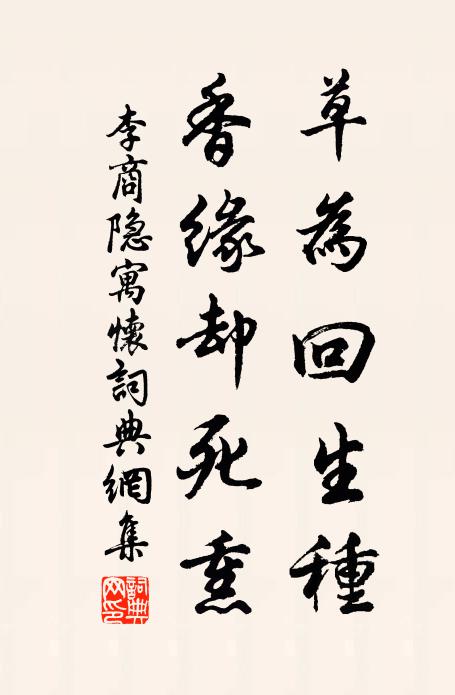 草為回生種
香緣却死熏
李商隐寓懷詞典網集
詞典網印